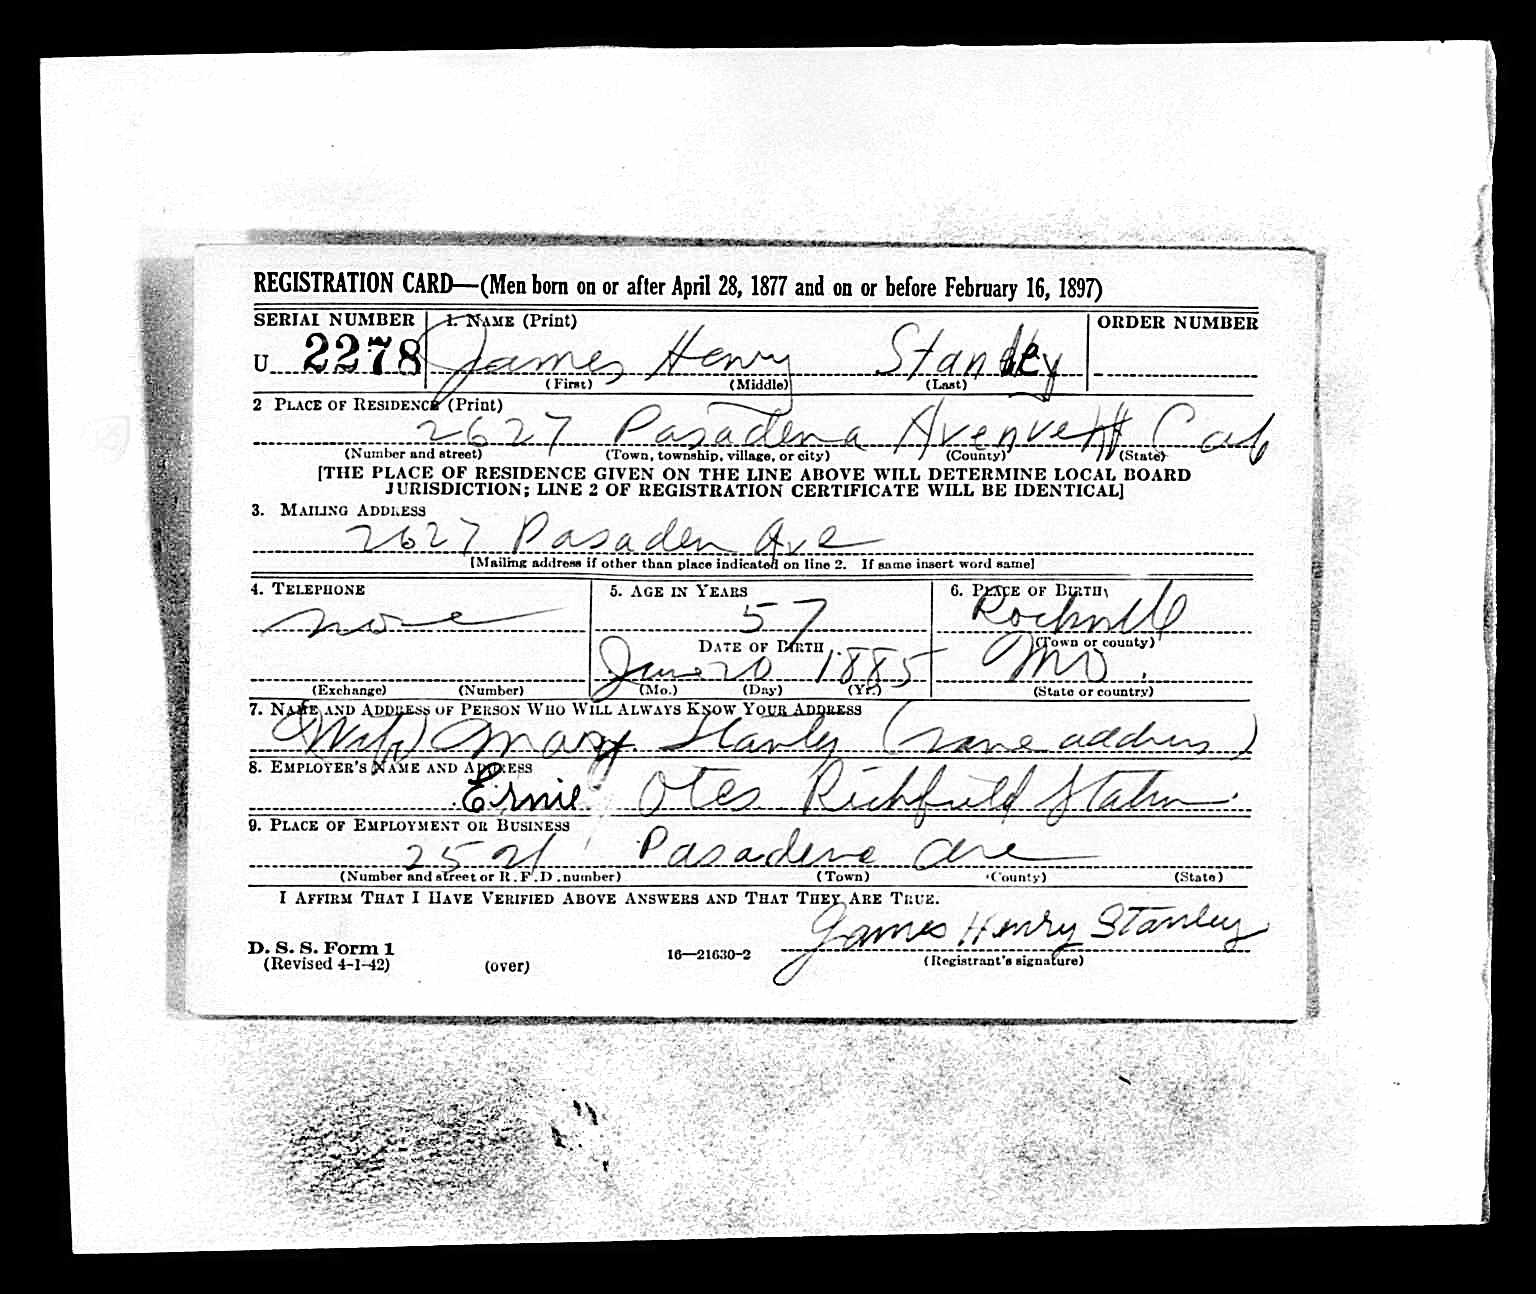 REGISTRATION CARD—(Men born on or after April 28, 1877 and on or before February 16, 1897)
SERIAL NUMBER 1. NAME (Print) ORDER NUMBER
U 2278 James Henry Stanley
(First) (Middle) (Last)
2 PLACE OF RESIDENCE (Print)
2627 Pasadena Avenue
(Number and street) (Town, township, village, or city) (County) (State)
[THE PLACE OF RESIDENCE GIVEN ON THE LINE ABOVE WILL DETERMINE LOCAL BOARD
JURISDICTION; LINE 2 OF REGISTRATION CERTIFICATE WILL BE IDENTICAL]
3. MAILING ADDRESS
2627 Pasaden Ave
[Mailing address if other than place indicated on line 2. If same insert word same]
4. TELEPHONE 5. AGE IN YEARS 6. PLACE OF BIRTH
none 57 Rockville
DATE OF BIRTH (Town or county)
June 20 1885 Mo.
(Exchange) (Number) (Mo.) (Day) (Yr.) (State or country)
7. NAME AND ADDRESS OF PERSON WHO WILL ALWAYS KNOW YOUR ADDRESS
(Wife) Mary Stanley (same address)
8. EMPLOYER'S NAME AND ADDRESS
Ernie Otes Richfield Station
9. PLACE OF EMPLOYMENT OR BUSINESS
2521 Pasadena Ave
(Number and street or R. F. D. number) (Town) (County) (State)
I AFFIRM THAT I HAVE VERIFIED ABOVE ANSWERS AND THAT THEY ARE TRUE.
James Henry Stanley
D. S. S. Form 1
(Revised 4-1-42) (over) 16—21630-2 (Registrant's signature)